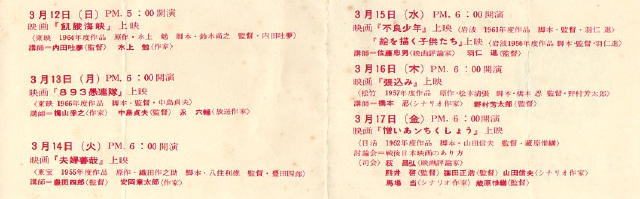 3月12日（日）PM. 5：00開演
映画『飢餓海峡』上映
（東映 1964年度作品 原作・水上 勉 脚本・鈴木尚之 監督・内田吐夢）
講師＝内田吐夢(監督) 水上 勉(作家)
3月13日（月）PM. 6：00開演
映画『893愚連隊』上映
（東映 1966年度作品 脚本・監督・中島貞夫）
講師＝福山幸之(作家) 中島貞夫(監督) 永 六輔(放送作家)
3月14日（火）PM. 6：00開演
映画『夫婦善哉』上映
（東宝 1955年度作品 原作・織田作之助 脚本・八住利雄 監督・豊田四郎）
講師＝豊田四郎(監督) 安岡章太郎(作家)
3月15日（水）PM. 6：00開演
映画『不良少年』上映（岩波 1961年度作品 脚本・監督・羽仁 進）
『絵を描く子供たち』上映（岩波1956年度作品 脚本・監督・羽仁進）
講師＝佐藤忠男(映画評論家) 羽仁 進(監督)
3月16日（木）PM. 6：00開演
映画『張込み』上映
（松竹 1957年度作品 原作・松本清張 脚本・橋本 忍 監督・野村芳太郎）
講師＝橋本 忍(シナリオ作家) 野村芳太郎(監督)
3月17日（金）PM. 6：00開演
映画『憎いあンちくしょう』上映
（日活 1962年度作品 脚本・山田信夫 監督・蔵原惟繕）
討論会＝戦後日本映画のあり方
（司会）荻 昌弘(映画評論家)
熊井 啓(監督) 篠田正浩(監督) 山田信夫(シナリオ作家)
馬場 当(シナリオ作家) 蔵原惟繕(監督)